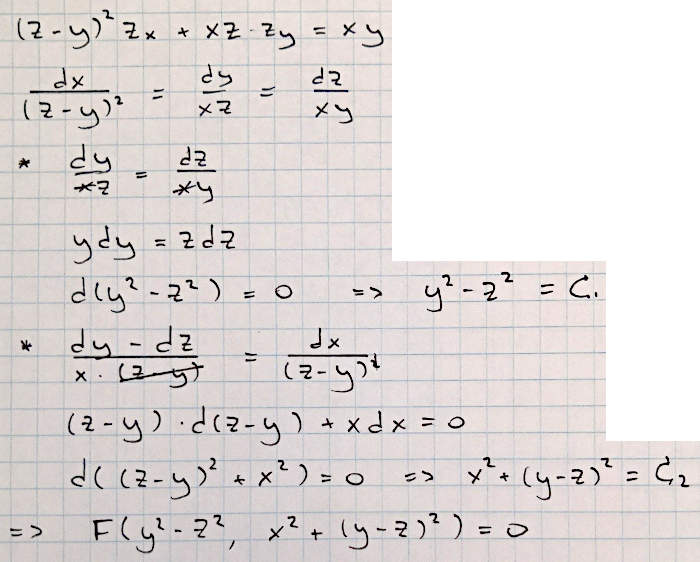 (z-y)² zₓ + xz · z_y = xy
dx/(z-y)² = dy/xz = dz/xy
* dy/xz = dz/xy
ydy = zdz
d(y² - z²) = 0 => y² - z² = C₁
* (dy - dz)/(x · (z-y)) = dx/(z-y)²
(z-y) · d(z-y) + xdx = 0
d((z-y)² + x²) = 0 => x² + (y-z)² = C₂
=> F(y² - z², x² + (y-z)²) = 0